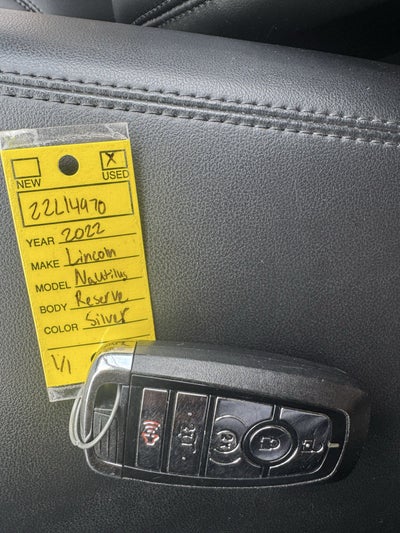 X
NEW USED
22L14970
YEAR 2022
MAKE Lincoln
MODEL Nautilus
BODY Reserve
COLOR Silver
1/1